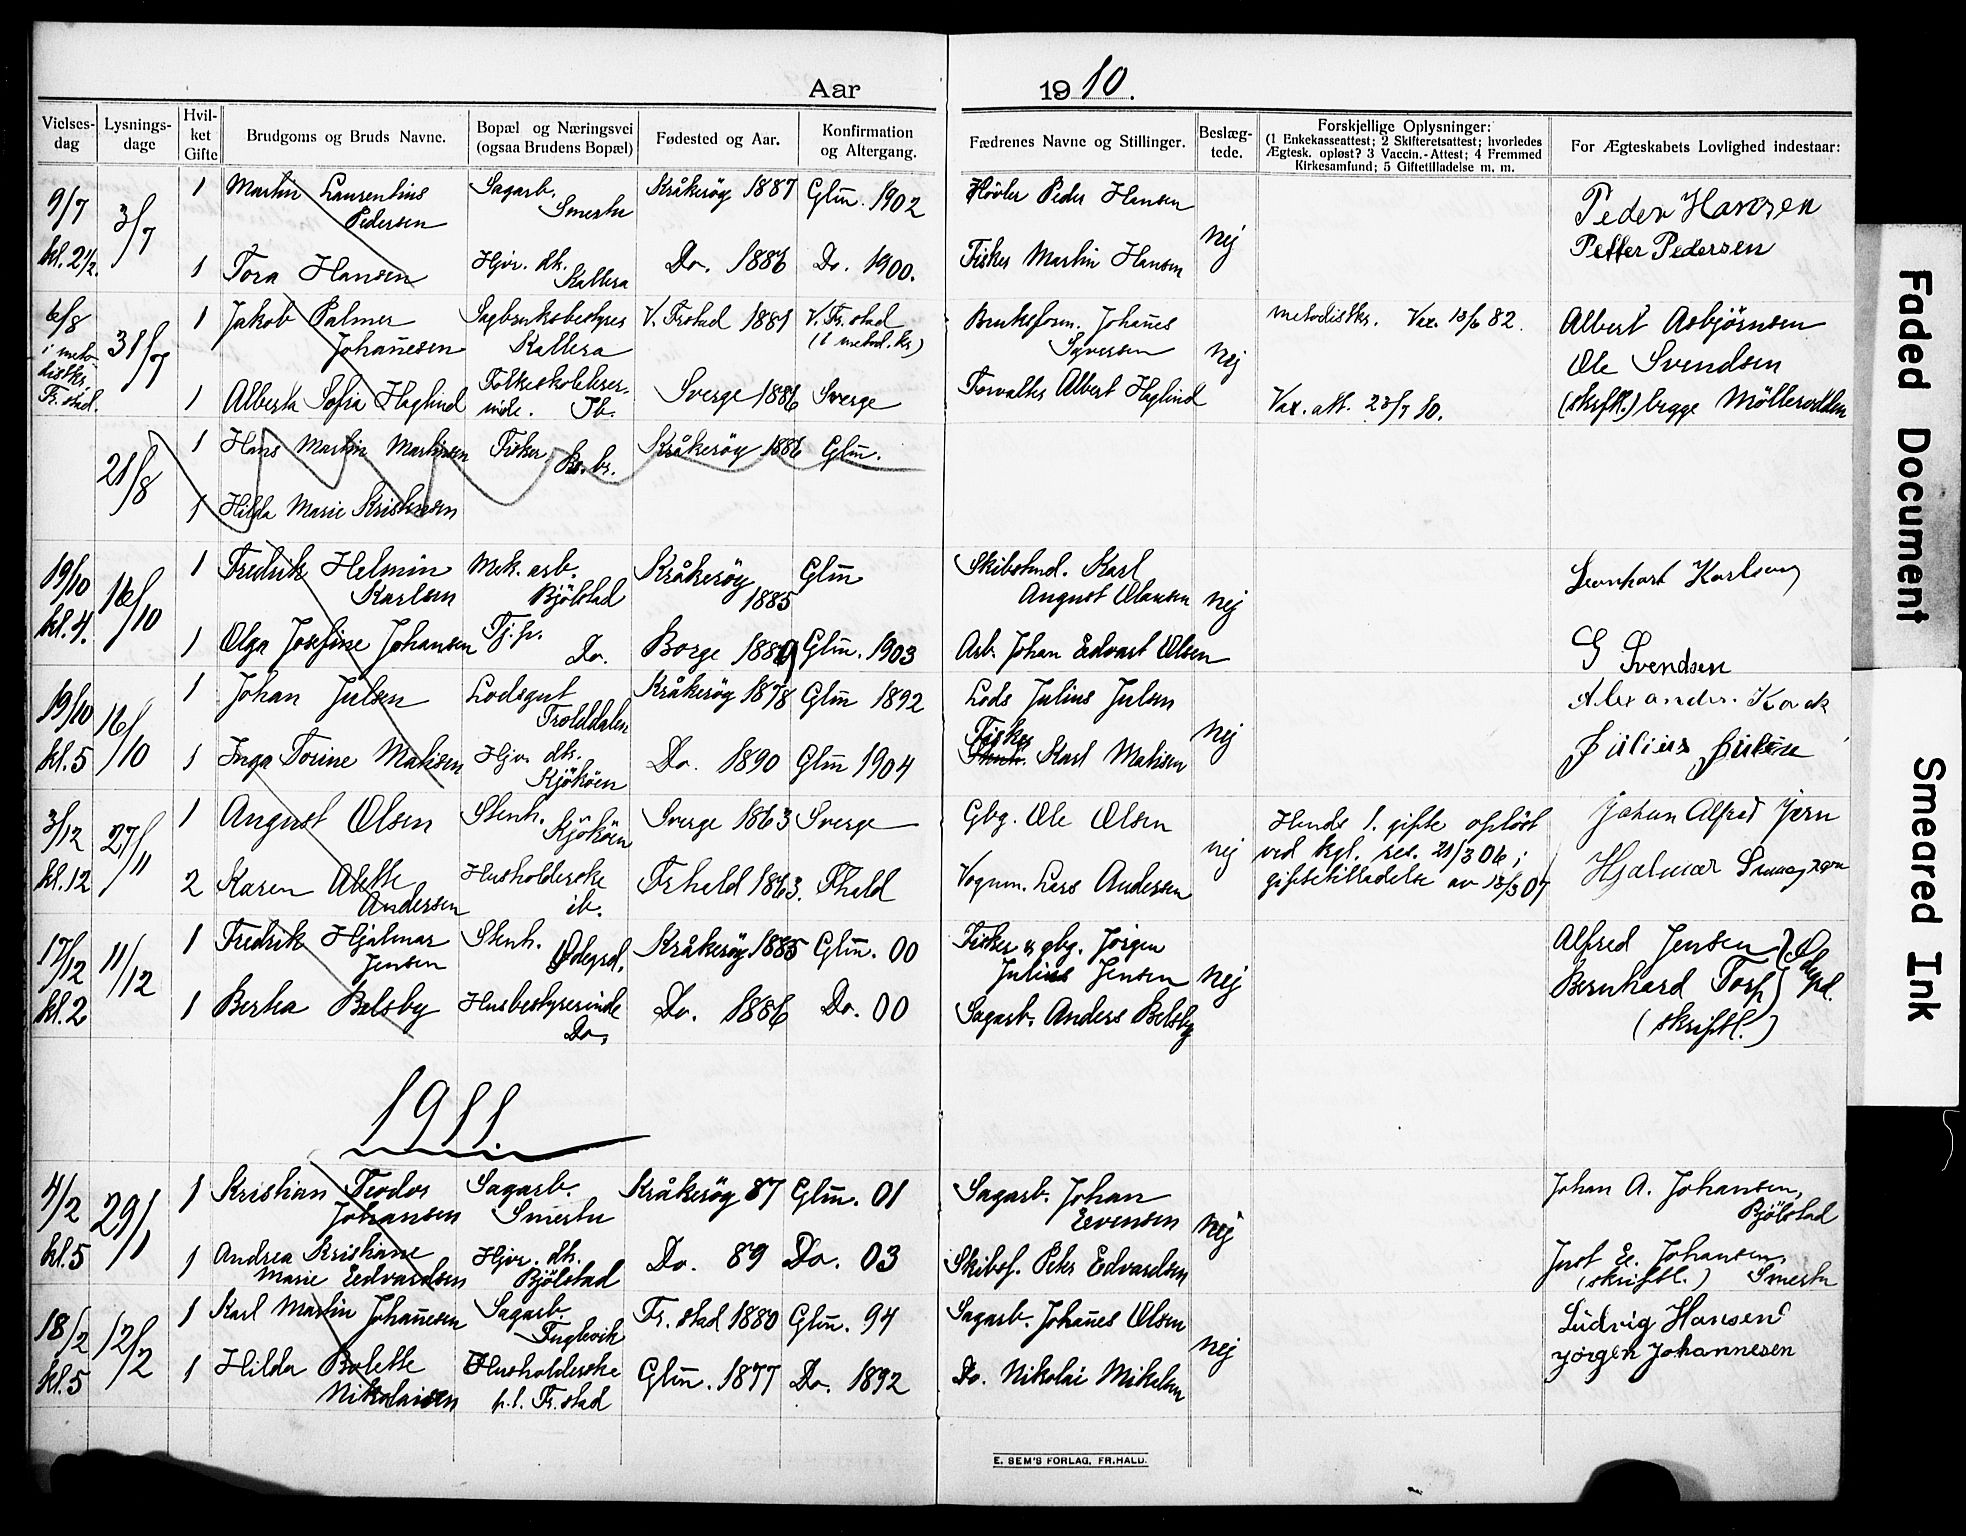 Aar 1910.
Vielses-dag
Lysnings-dage
Hvil-ket Gifte
Brudgoms og Bruds Navne.
Bopæl og Næringsvei (ogsaa Brudens Bopæl)
Fødested og Aar.
Konfirmation og Altergang.
Fædrenes Navne og Stillinger.
Beslæg-tede.
Forskjellige Oplysninger:
(1 Enkekasseattest; 2 Skifteretsattest; hvorledes
Ægtesk. opløst? 3 Vaccin.-Attest; 4 Fremmed
Kirkesamfund; 5 Giftetilladelse m. m.
For Ægteskabets Lovlighed indestaar:
9/7 kl. 2 1/2. 3/7
1 Martin Laurentius Pedersen Sagarb. Smertu Kråkerøy 1887 Glm. 1902 Høvler Peder Hansen nej Peder Hansen
1 Tora Hansen Hjv. dtr. Kallera Do. 1886 Do. 1900. Fisker Martin Hansen Petter Pedersen
6/8 i metodistkr. Fr.stad. 31/7
1 Jakob Palmer Johañesen Sagbruksbestyrer Kallera V. Frstad 1881 V. Fr.stad (i metod. kr.) Bruksform. Johañes Syversen nej metodistkr. Vax. 13/6 82. Albert Asbjørnsen
Ole Svendsen
1 Alberta Sofia Haglind Folkeskolelærerinde. Ib. Sverge 1886 Sverge Forvalter Albert Haglind Vax. att. 23/7 10. (skrftl.) begge Møllerodden
21/8
1 Hans Martin Martinsen Fisker Kråkerøy 1886 Glm.
1 Hilda Marie Kristensen
19/10 kl. 4. 16/10
1 Fredrik Helmin Karlsen Mek. arb. Bjölstad Kråkerøy 1885 Glm Skibstmd. Karl August Olausen nej Leonhart Karlsen
1 Olga Josefine Johansen Tj.p. Do. Borge 1889 Glm. 1903 Arb. Johan Edvart Olsen G Svendsen
19/10 kl. 5 16/10
1 Johan Julsen Lodsgut Trolddalen Kråkerøy 1878 Glm 1892 Lods Julius Julsen nej Alexander Kock
1 Inga Torine Matisen Hjv. dtr. Kjökøen Do. 1890 Glm 1904 Fisker Karl Matisen Julius Julsen
3/12 kl. 12 27/11
1 August Olsen Stenh. Kjökøen Sverge 1863 Sverge Gbg. Ole Olsen nej Hends 1. gifte opløst Johan Alfred Jern
2 Karen Alette Andersen Husholderske ib. Frhald 1863. Fhald Vognm. Lars Andersen ved kgl. res. 21/3 06;
giftetilladelse av 13/3 07 Hjalmar
17/12 kl. 2 11/12
1 Fredrik Hjalmar Jensen Stenh. Ødegrd. Kråkerøy 1885 Glm. 00 Fisker & gbg. Jörgen Julius Jensen nej Alfred Jensen
Bernhard Torp
1 Berta Belsby Husbestyrerinde Do. Do. 1886 Do. 00 Sagarb. Anders Belsby (skriftl.)
1911.
4/2 kl. 5 29/1
1 Kristian Teodor Johansen Sagarb. Smertu Kråkerøy 87 Glm. 01 Sagarb. Johan Evensen nej Johan A. Johansen, Bjölstad
1 Andrea Kristiane Marie Edvardsen Hjv. dtr. Bjölstad Do. 89 Do. 03 Skibsf. Peter Edvardsen Just E. Johansen, (skriftl.) Smertu
18/2 kl. 5 12/2
1 Karl Martin Johañesen Sagarb. Fuglevik Fr.stad 1880 Glm. 94 Sagarb. Johañes Olsen nej Ludvig Hansen
1 Hilda Bolette Nikolaisen Husholderske p.t. Fr.stad Glm. 1877 Do. 1892 Do. Nikolai Mikelsen Jörgen Johannesen
E. SEM'S FORLAG, FR.HALD.
Faded Document
Smeared Ink